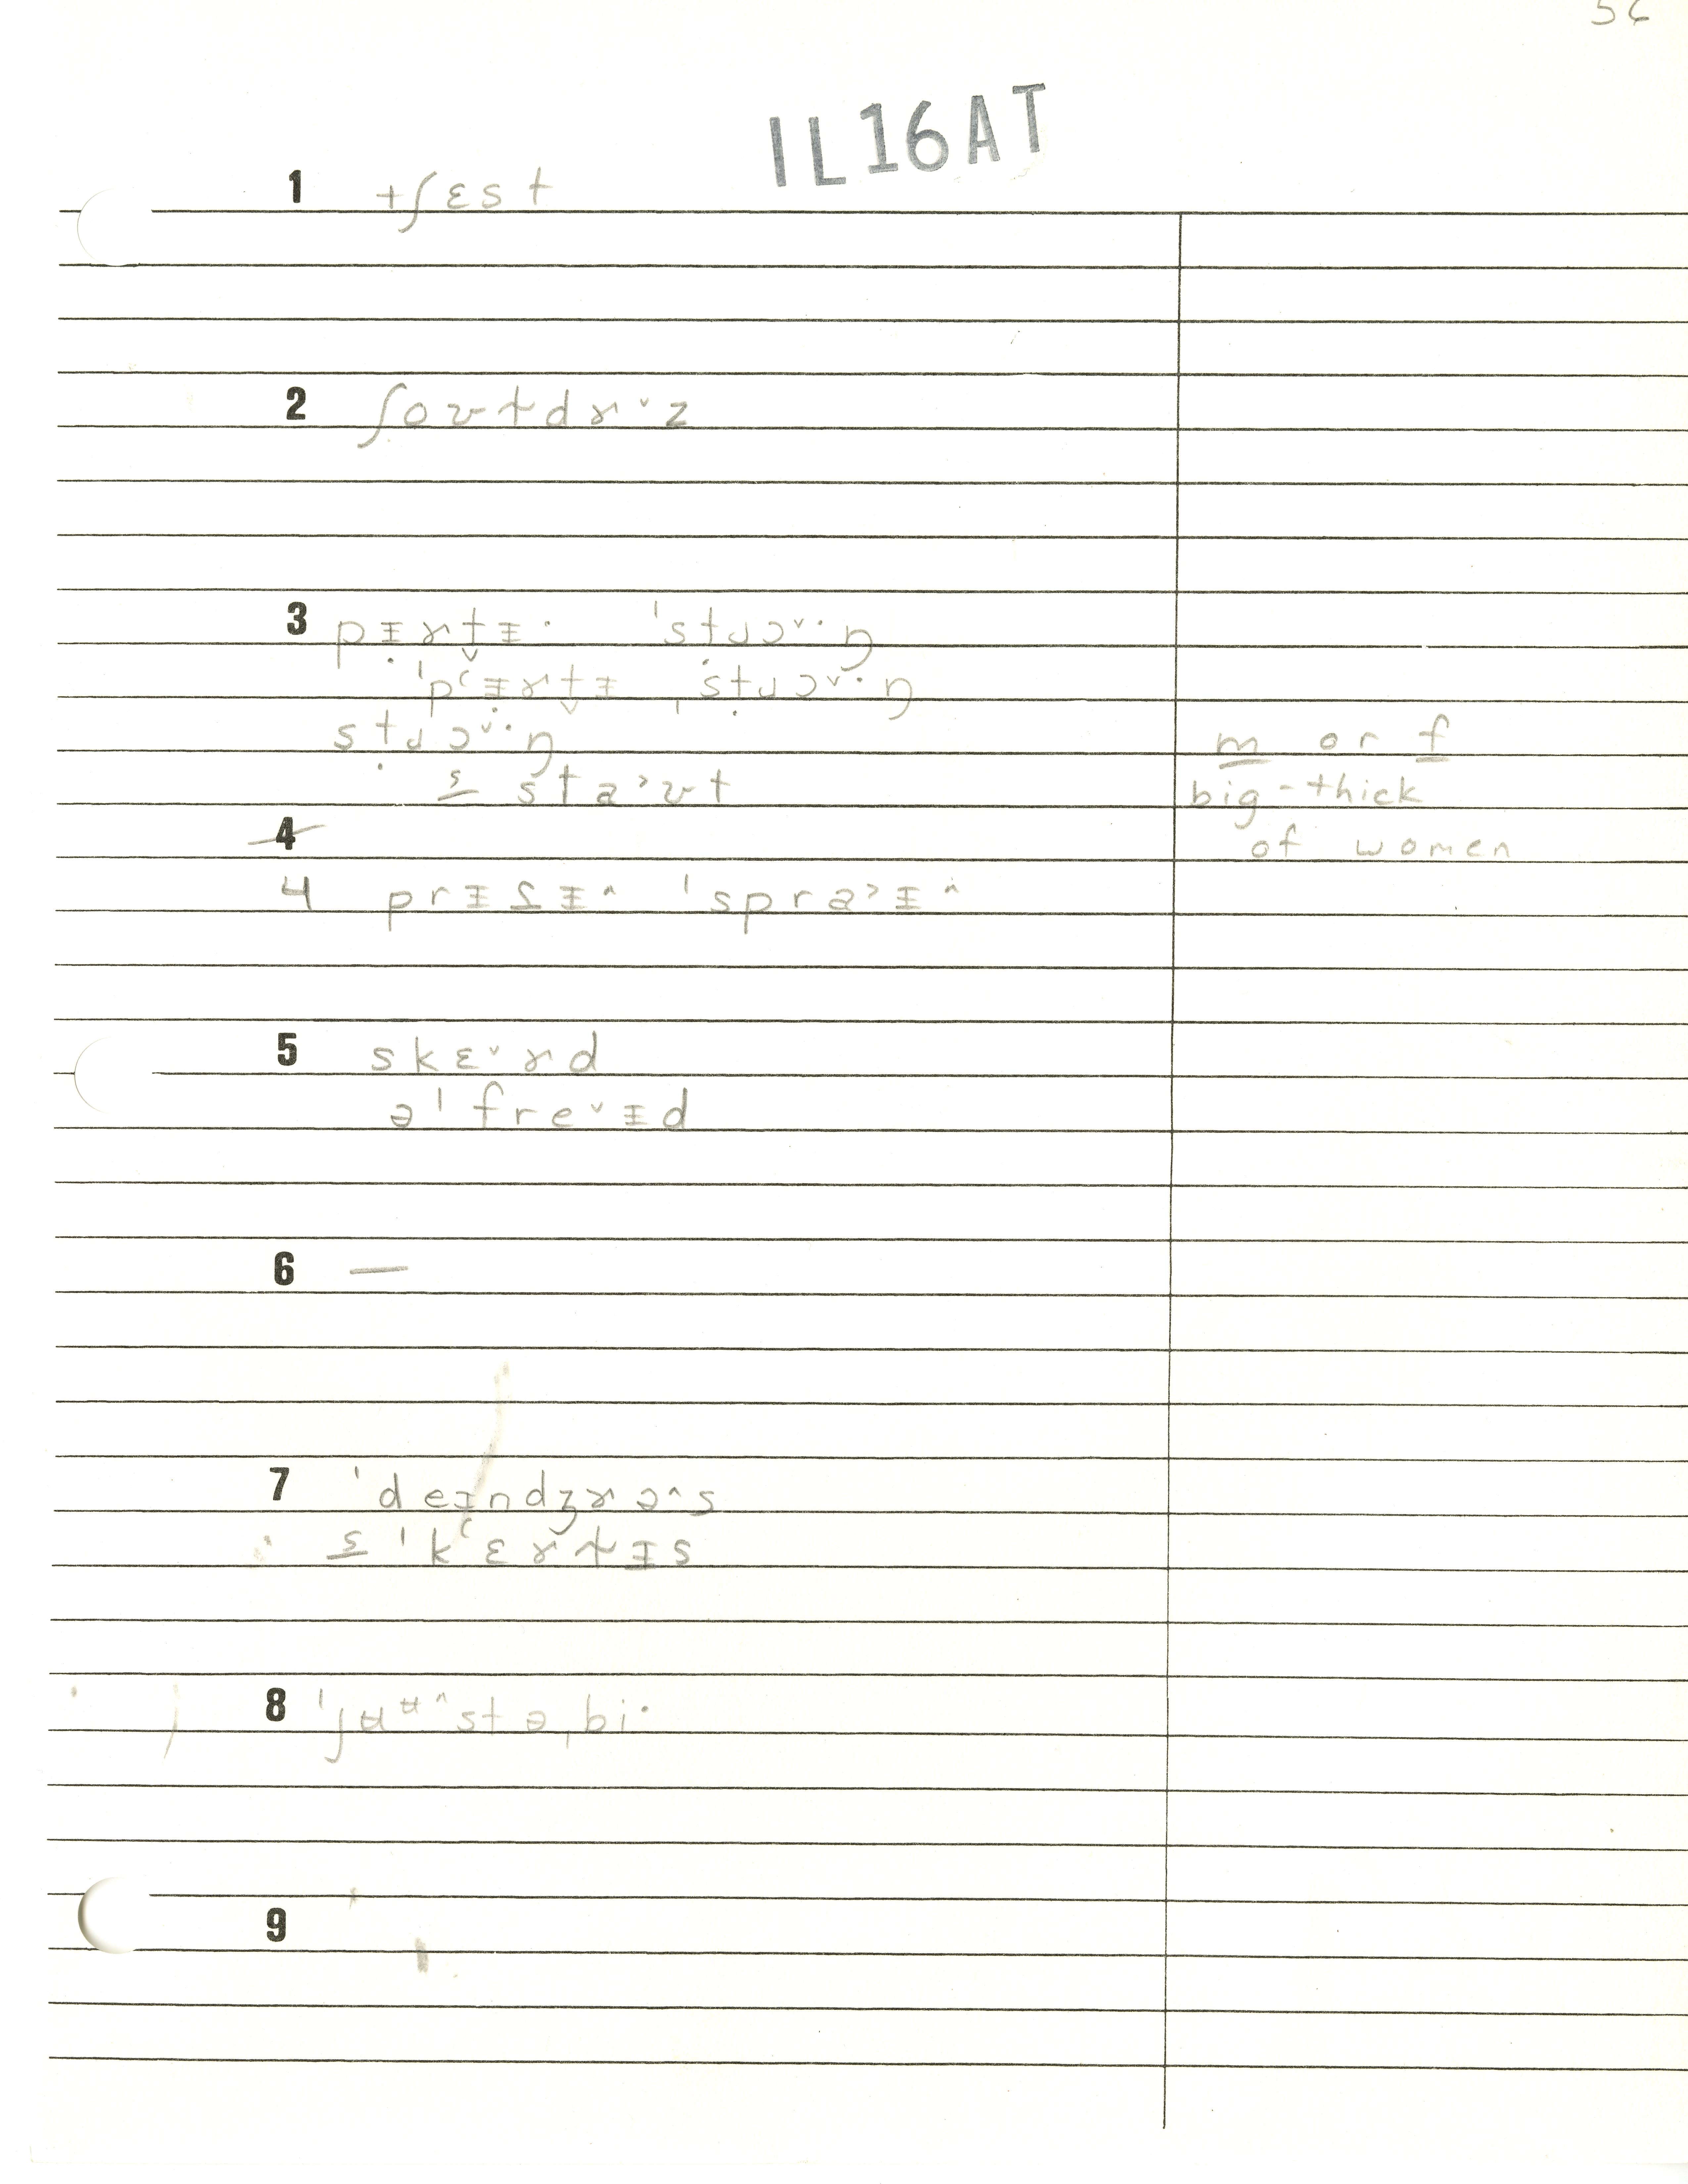 56
IL16AT
1 tʃɛst
2 ʃoʊt̬dɚ˅z
3 pɪ̵ɚt̬ɪ̵· ˈstɹɔ˅·ŋ
ˈpʿɪ̵ɚt̬ɪ̵ ˌstɹɔ˅·ŋ
stɹɔ˅·ŋ m or f
s̲ sta˃ʊt big-thick
4 of women
4 prɪ̵ʃɪ̵^ ˈspra˃ɪ̵^
5 skɛ˅ɚd
əˈfre˅ɪ̵d
6 —
7 ˈdeɪ̵ndʒɚə^s
s̲ ˈkʿɛɚt̬ɪ̵s
8 ˈjʉʉ^stəˌbi·
9